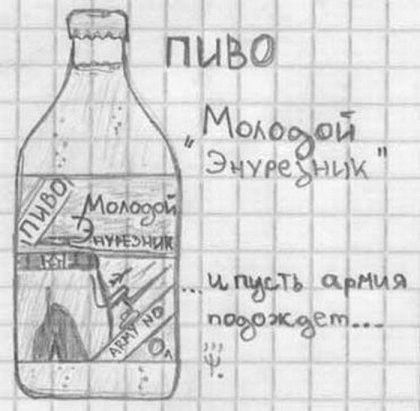 ПИВО
"Молодой
Энурезник"
ПИВО
Молодой
Энурезник
ARMY NO
...и пусть армия
подождет...